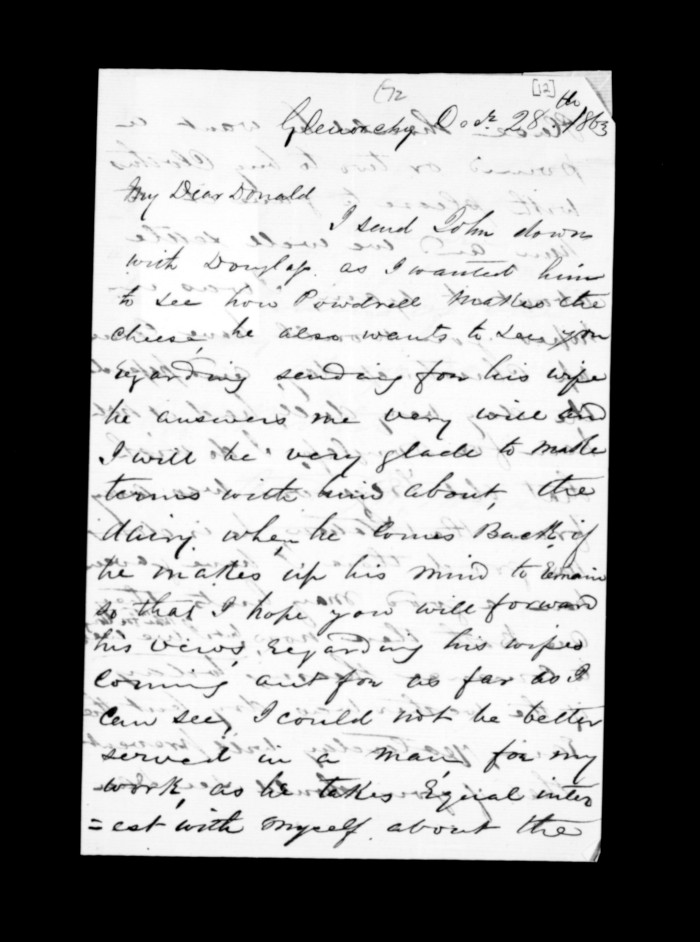 72
[12]
Glenorchy Decr 28th 1863
My Dear Donald
I send John down
with Douglas. as I wanted him
to see how Powdrell Makes the
cheese, he also wants to see you
regarding sending for his wife
he answers me very well and
I will be very glade to make
terms with him about, the
dairy. when he comes Back, if
he makes up his mind to remain
so that I hope you will forward
his views, regarding his wifes
coming out for as far as I
can see, I could not be better
served in a man, for my
work, as he takes Equal inter
=est with myself. about the